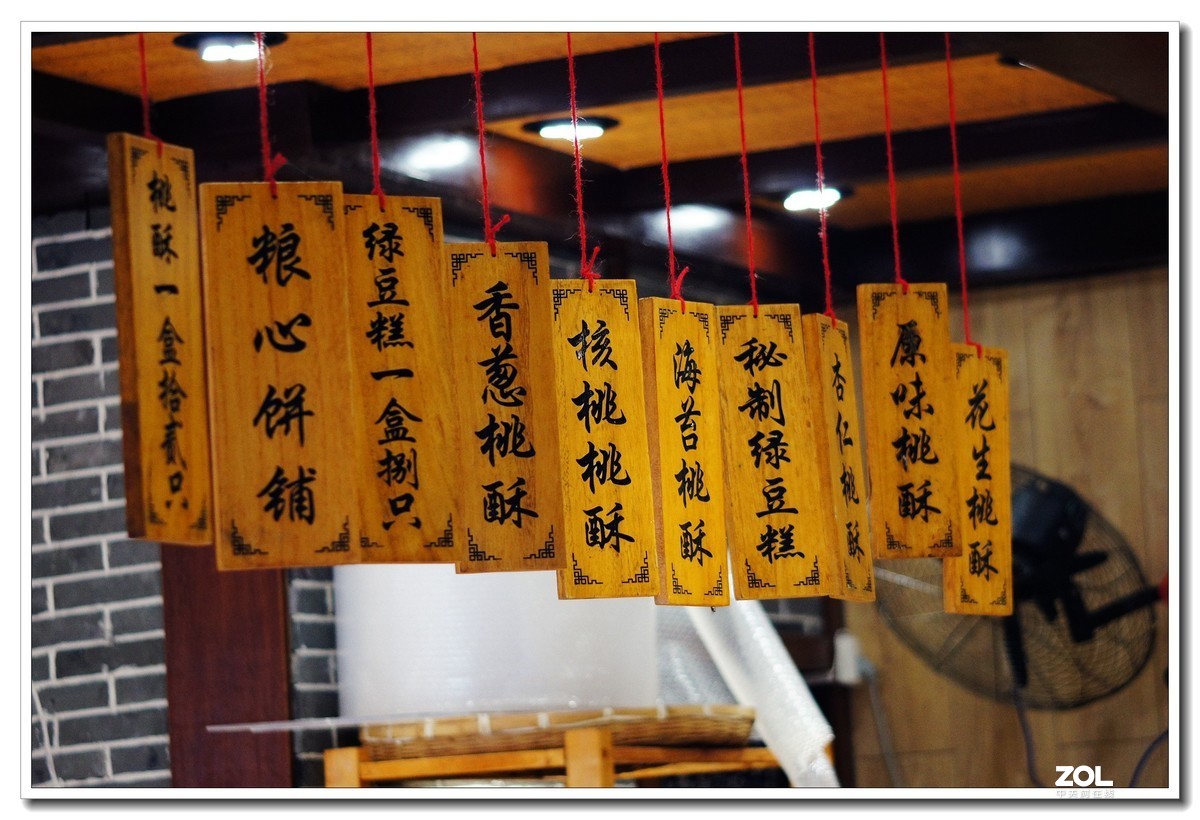 桃酥一盒拾贰只
粮心饼铺
绿豆糕一盒捌只
香葱桃酥
核桃桃酥
海苔桃酥
秘制绿豆糕
杏仁桃酥
原味桃酥
花生桃酥
ZOL
中关村在线